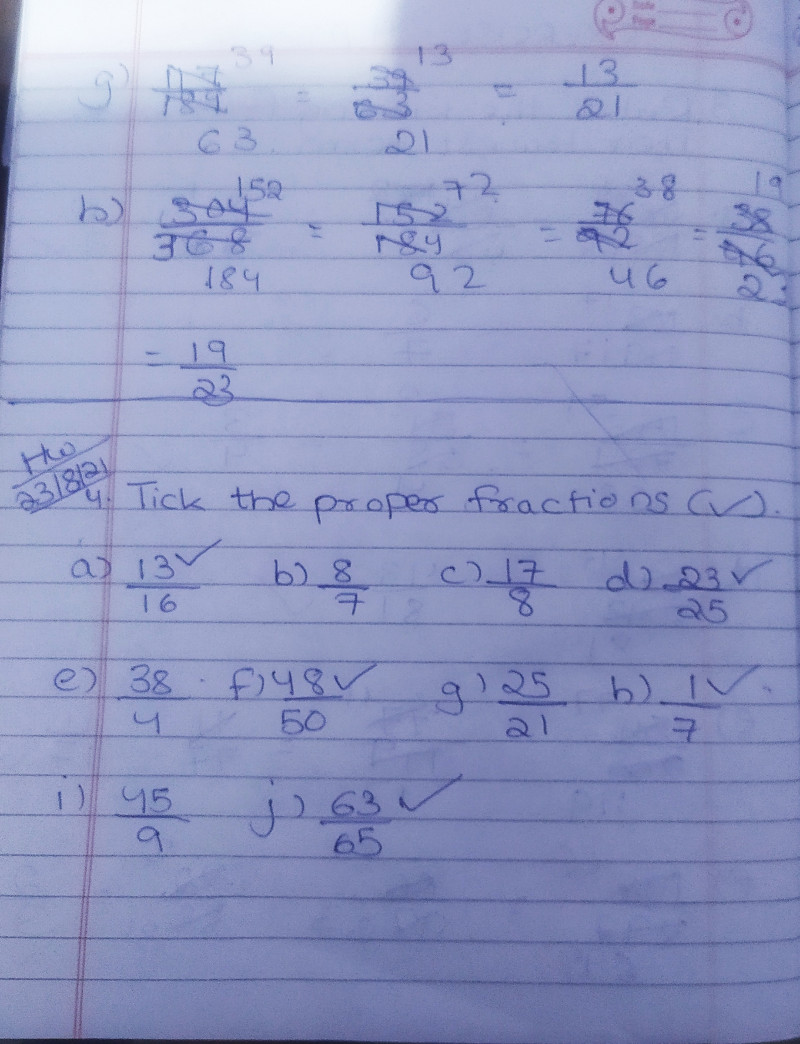 Date
Page
g) 117/189 39 63 = 39/63 13 21 = 13/21
h) 304/368 152 184 = 152/184 72 92 = 76/92 38 46 = 38/46 19 23
= 19/23
HW
23/8/21
4. Tick the proper fractions (✓).
a) 13/16 ✓ b) 8/7 c) 17/8 d) 23/25 ✓
e) 38/4 f) 48/50 ✓ g) 25/21 h) 1/7 ✓
i) 45/9 j) 63/65 ✓